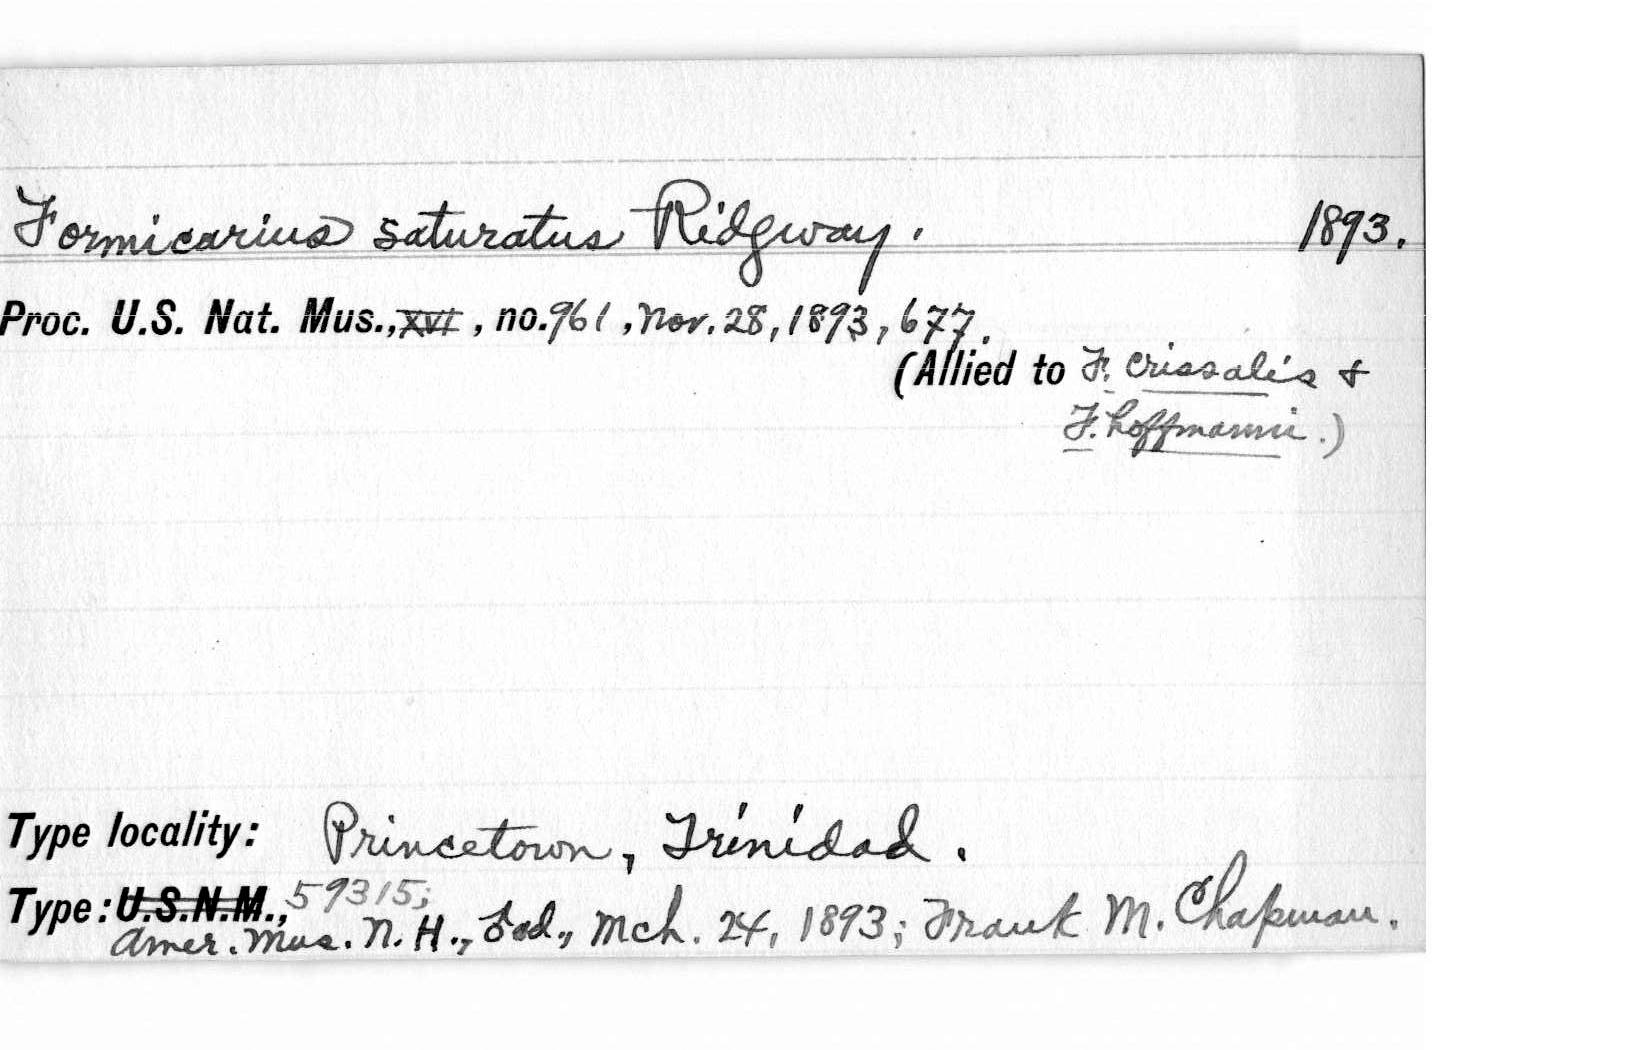 Formicarius saturatus Ridgway. 1893.
Proc. U.S. Nat. Mus., XVI, no. 961, Nov. 28, 1893, 677.
(Allied to F. crissalis &
F. hoffmanni.)
Type locality: Princetown, Trinidad.
Type: U.S.N.M., 59315;
Amer. Mus. N. H., ad., Mch. 24, 1893; Frank M. Chapman.